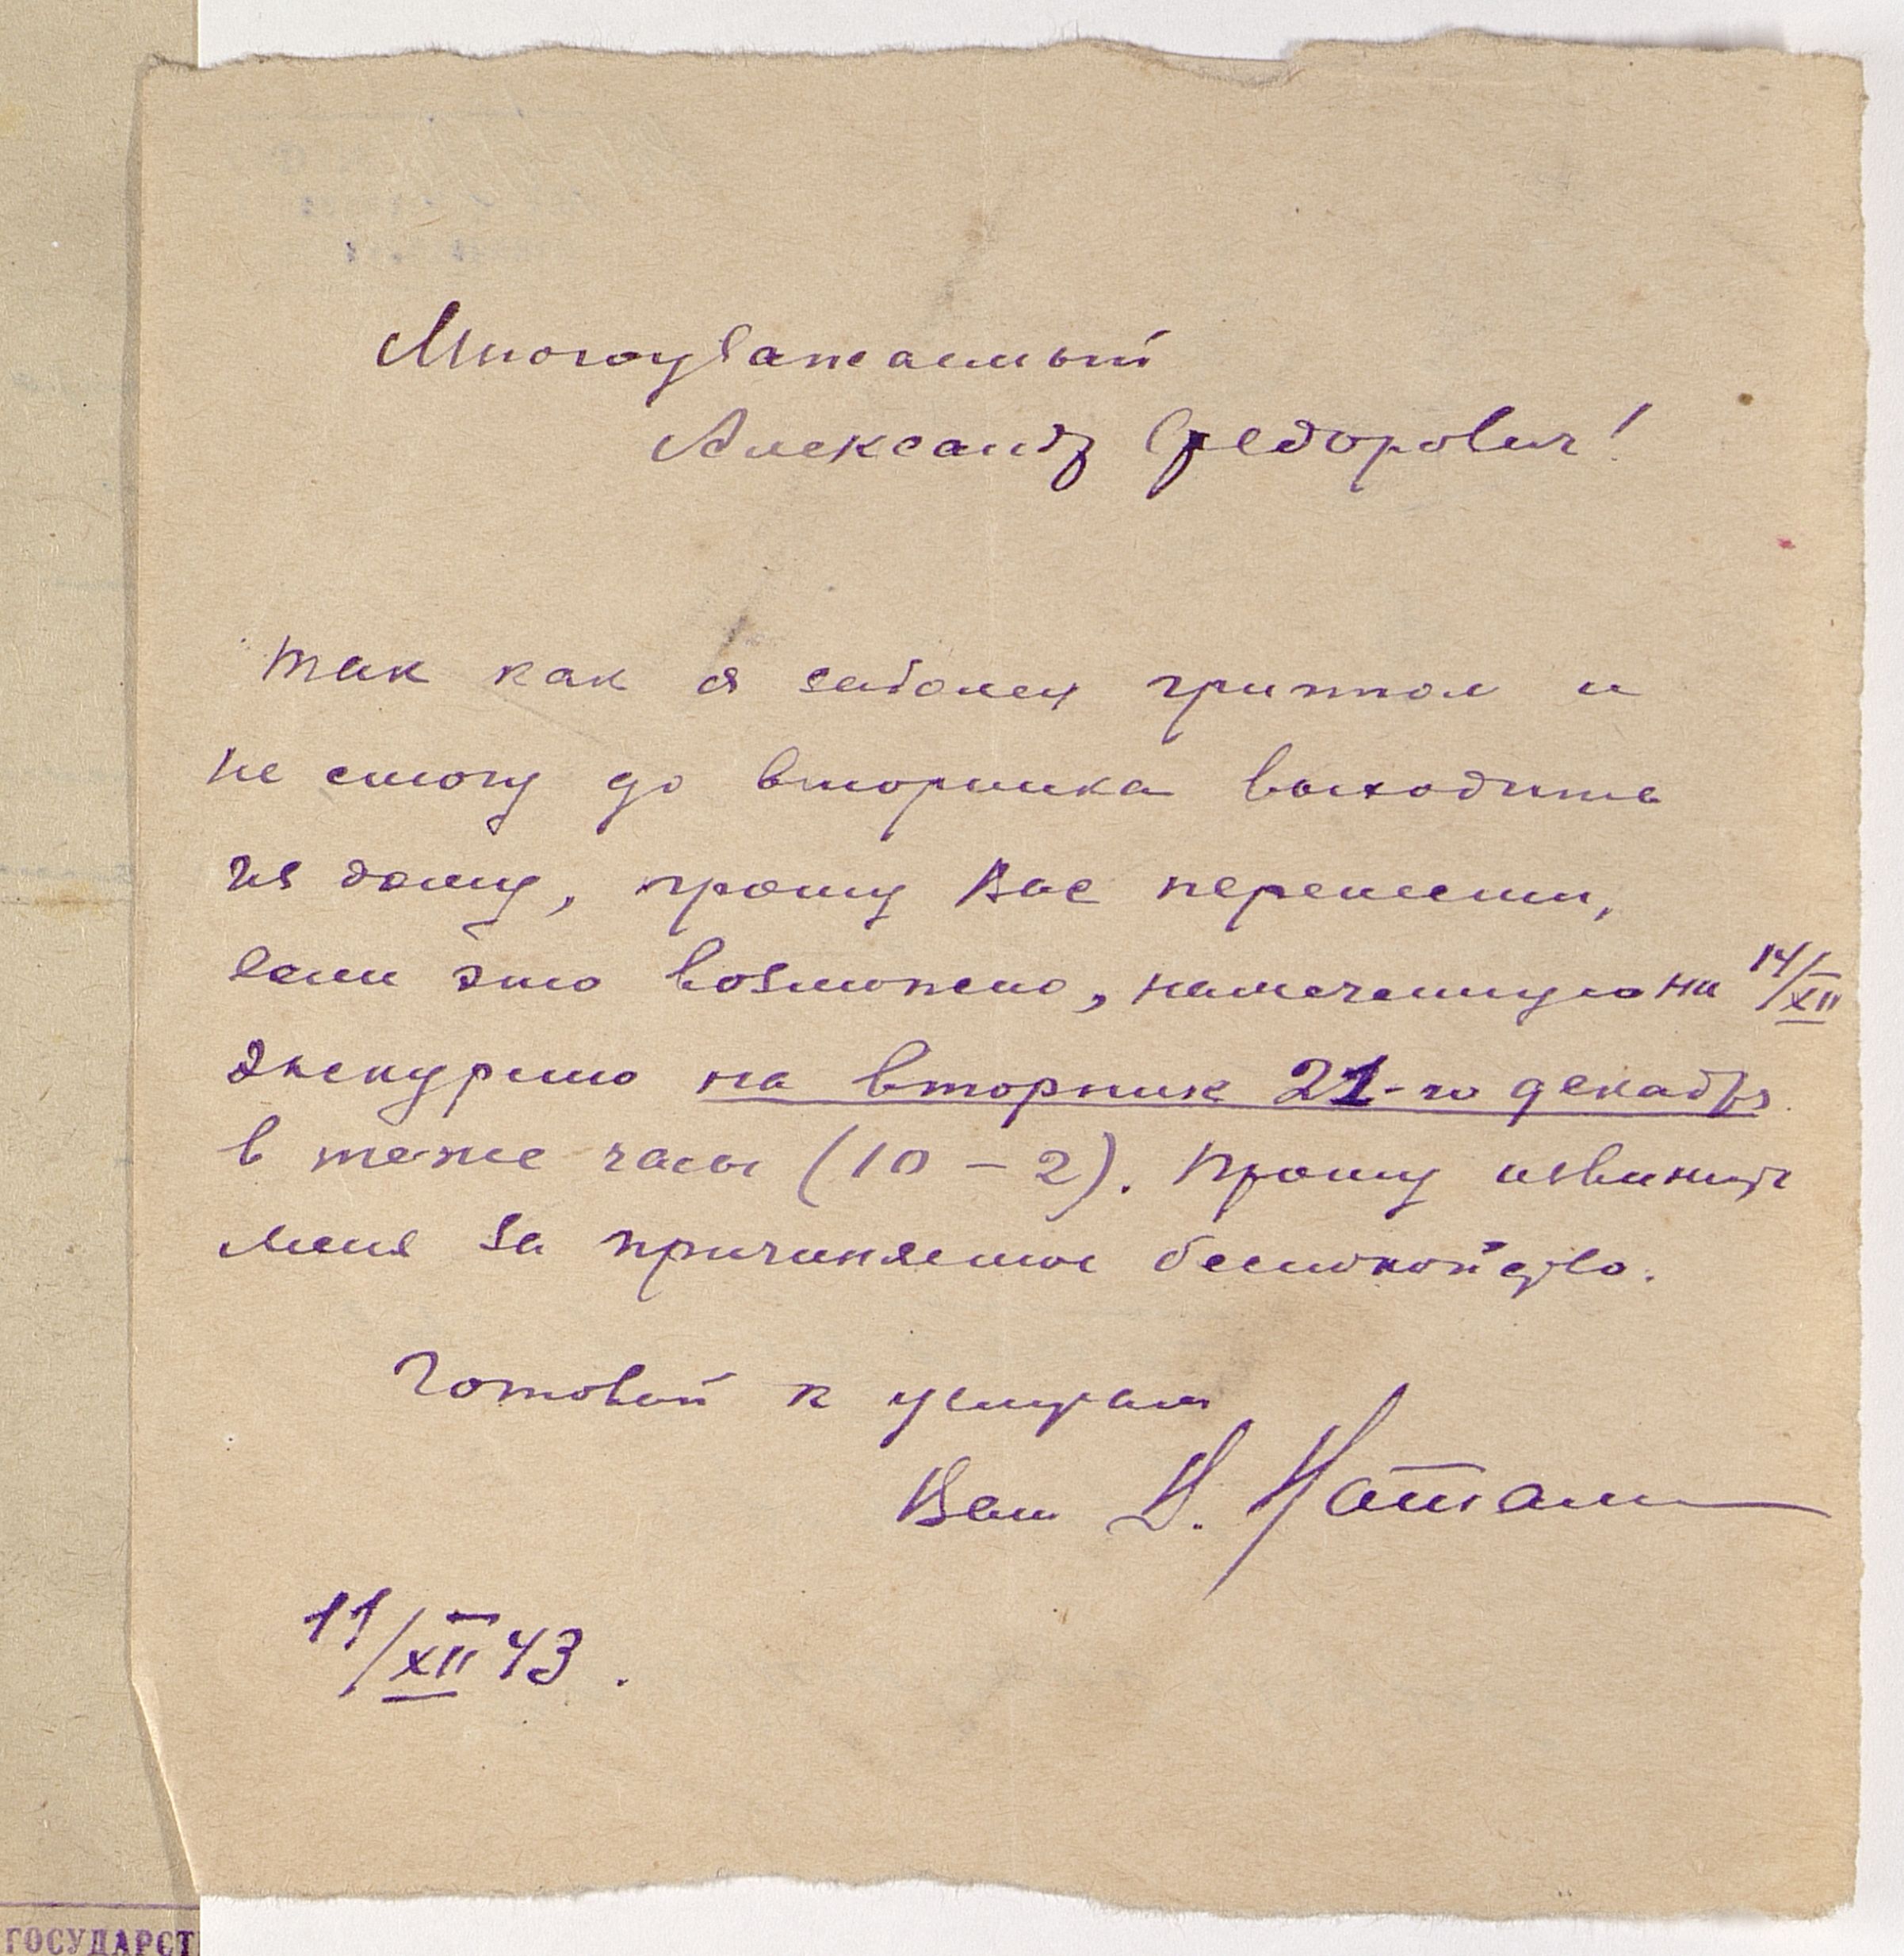 Многоуважаемый
Александр Федорович!
Так как я заболел гриппом и
не смогу до вторника выходить
из дому, прошу Вас перенести,
если это возможно, намеченную на 14/XII
экскурсию на вторник 21-го декабр
в те же часы (10 – 2). Прошу извинить
меня за причиняемое беспокойство.
Готовый к услугам
Ваш
11/XII 43.
ГОСУДАРСТ